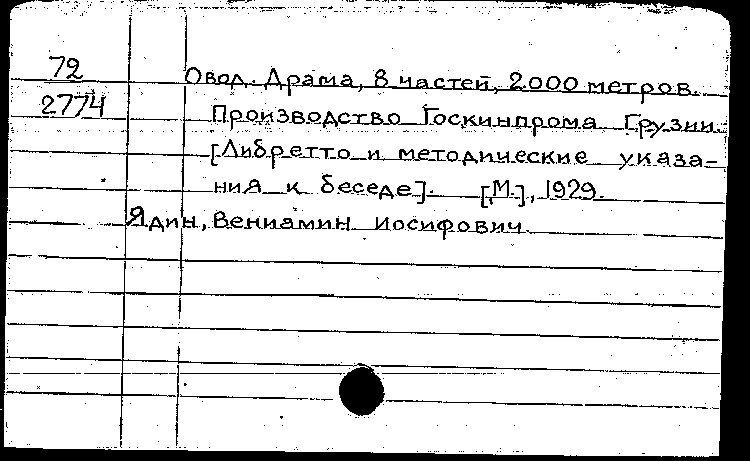 72 Овод. Драма, 8 частей, 2000 метров.
2774 Производство Госкинпрома Грузии.
[Либретто и методические указа-
ния к беседе]. [М.], 1929.
Ядин, Вениамин Иосифович.